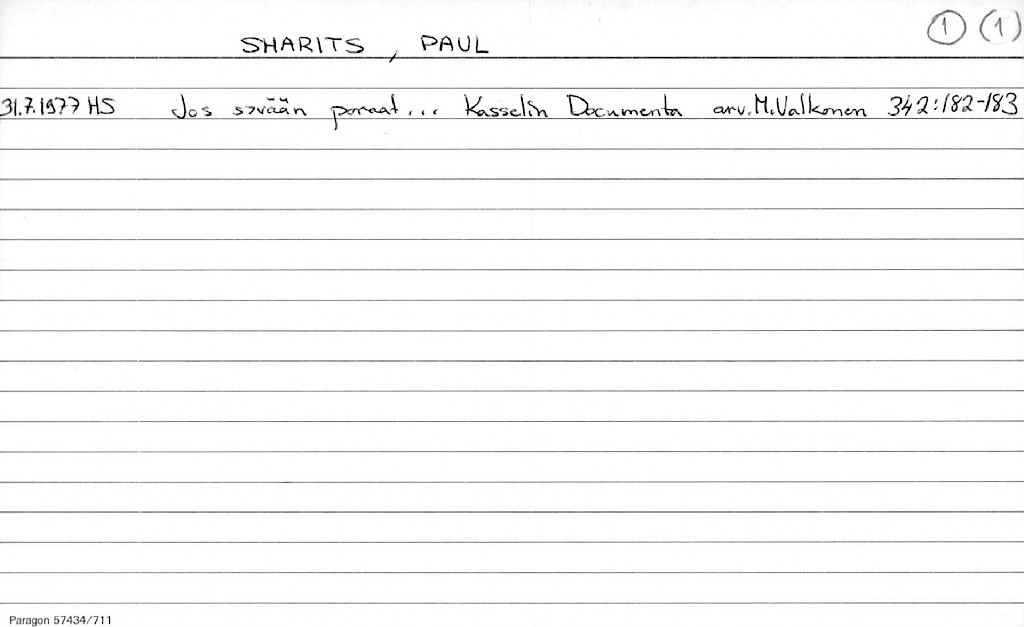 1 1
SHARITS, PAUL
31.7.1977 HS Jos syvään poraat... Kasselin Documenta arv. M. Valkonen 342:182-183
Paragon 57434/711